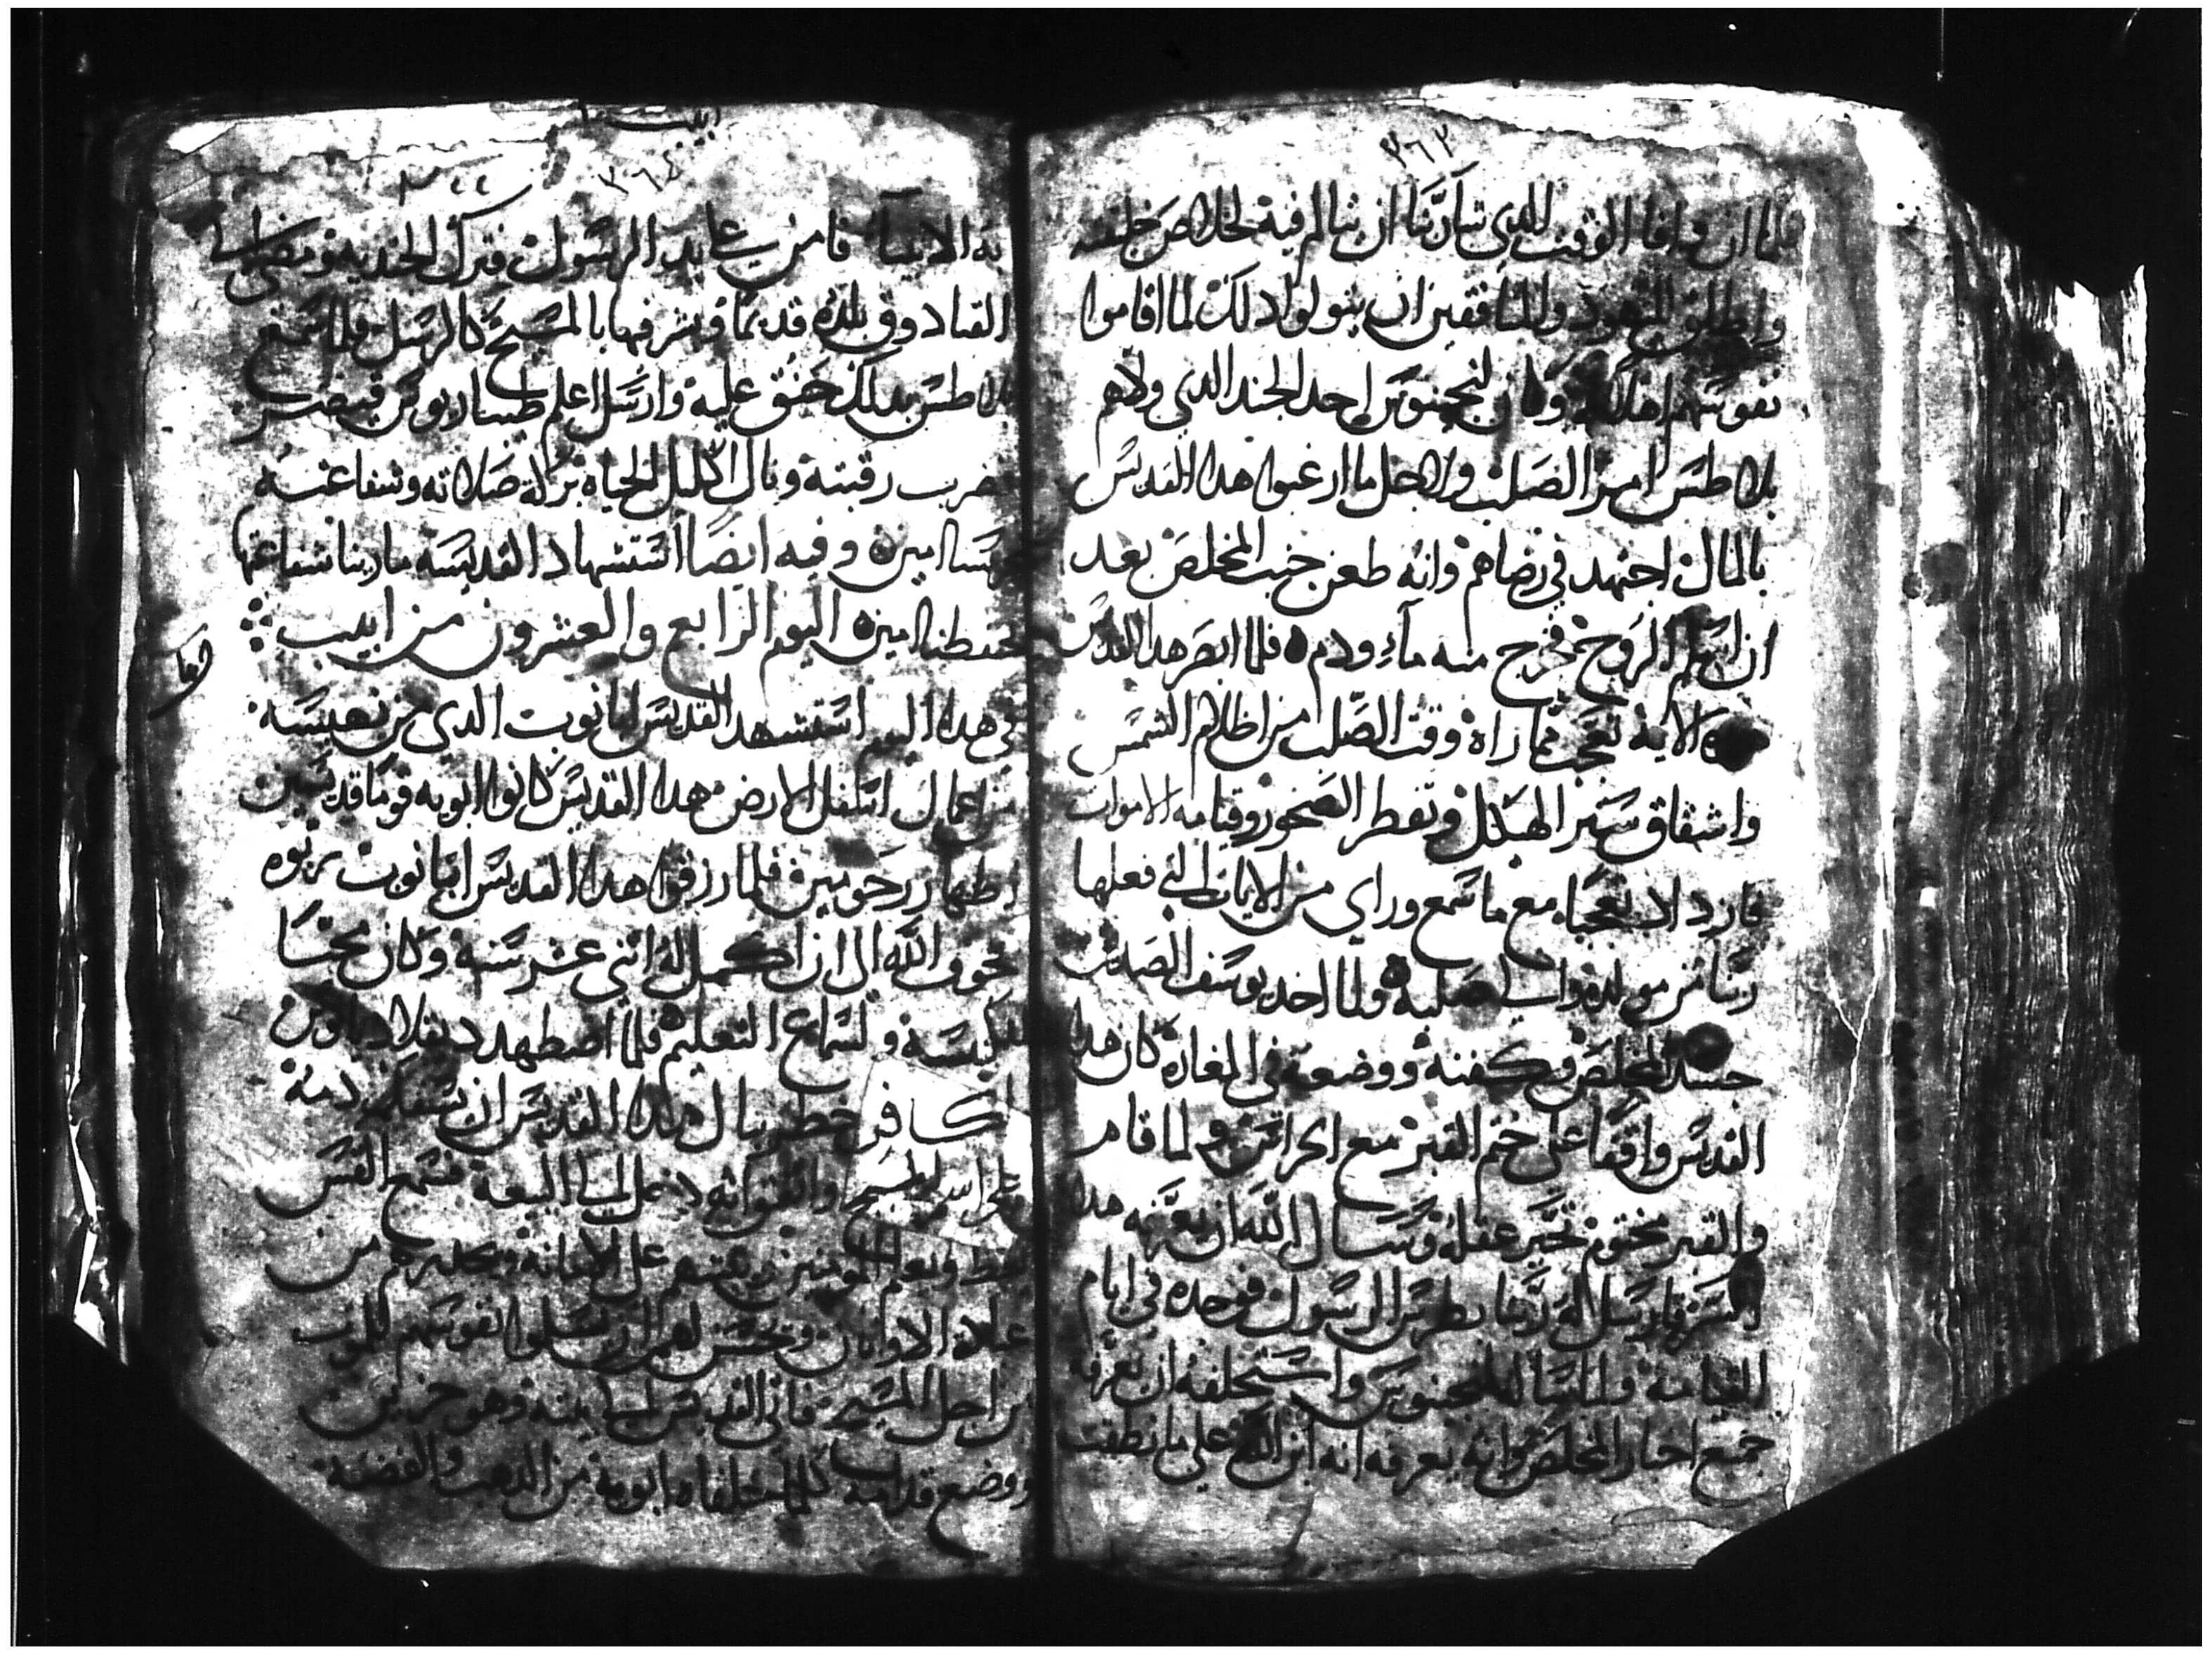 ٣٦٣
فلما ان وافا الوقت الدي شا ربنا ان يتالم فية لخلاص خليقته
واطلق اليهود والمنافقين ان يتولوا دلك لما اقاموا
نفوسهم وكان لنجينوس احد الجند الدي ولاهم
بلاطس امر الصلب ولاجل ما ارغبوا هدا القديس
بالمال اجتهد في رضاهم وانه طعن جنب المخلص بعد
ان اسلم الروح فخرج منه ماء ودم فلما ابصر هدا القديس
الاية تعجب مما راه وقت الصلب من اظلام الشمس
وانشقاق ستر الهيكل وتفطر الصخور وقيامه الاموات
فازداد تعجبا مع ما سمع وراي من الايات التي فعلها
ربنا من مولده والي صلبه ولما اخد يوسف الصديق
جسد المخلص وكفنه ووضعة في المغارة كان هدا
القديس واقفا على ختم القبر مع الحراس ولما قام
والقبر مختوم تحير عقله وسال الله ان يعرفه هدا
السر فارسل له ربنا بطرس الرسول فوجده في ايام
القيامة ولما سال لنجينوس واستحلفه ان يعرفه
جميع اخبار المخلص وانه يعرفه انه ابن الله على ما نطقت
ابيب
٣٦٤
به الانبيا فامن على يد الرسول فترك الجندية ومضي الى
القبادوق بلده قديما وبشر فيها بالمسيح كالرسل ولما سمع
بلاطس بدلك حنق عليه وارسل اعلم طيباريوس فبعث
ضرب رقبته ونال اكليل الحياة بركة صلاته وشفاعته
امين وفيه ايضا استشهاد القديسه مارينا شفاعتها
تحفظنا امين اليوم الرابع والعشرون من ابيب
في هدا اليوم استشهد القديس ابا نوب الدي من نهيسه
من اعمال اسفل الارض هدا القديس كانوا ابويه قوما قديسين
اطهار رحومين فلما رزقوا هدا القديس ابا نوب ربوه
بخوف الله الى ان اكمل له اثني عشر سنه وكان محبا
للكنيسه ولسماع التعليم فلما اضطهد ديقلاديانوس
الكافر خطر ببال هدا القديس ان يسفك دمه
على اسم المسيح واتفق انه دخل الى البيعه فسمع القس
يعظ ويعلم المومنين يثبتهم على الامانه ويحدرهم من
عبادة الاوتان ويحسن لهم ان يسلموا نفوسهم للموت
من اجل المسيح فاتى القديس الى بيته وهو حزين
ووضع قدامه كلما خلفاه ابويه من الدهب والفضه